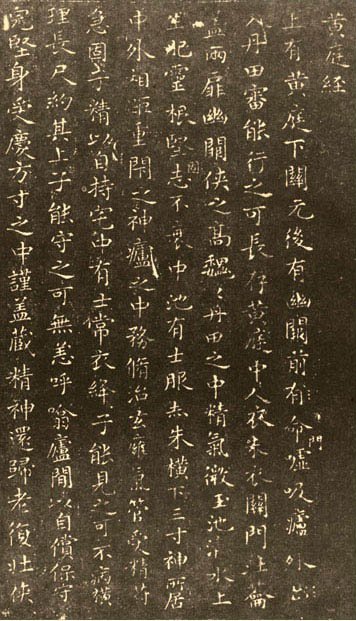 黄庭経
上有黄庭下關元後有幽闕前有命門嘘吸廬外出
入丹田審能行之可長存黄庭中人衣朱衣關門壯籥
蓋兩扉幽闕俠之高魏々丹田之中精氣微玉池清水上
生肥靈根堅固志不衰中池有士服赤朱橫下三寸神所居
中外相距重閉之神廬之中務脩治玄雍氣管受精符
急固子精以自持宅中有士常衣絳子能見之可不病橫
理長尺約其上子能守之可無恙呼噏廬間以自償保守
完堅身受慶方寸之中謹蓋藏精神還歸老復壯俠